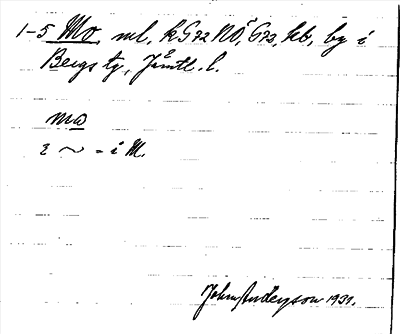 1-5 Mo, ml, kG72 NÖ, G73, hb, by i
Bergs tg, Jämtl. l.
mω
i ~ = i M.
John Anderson 1931.